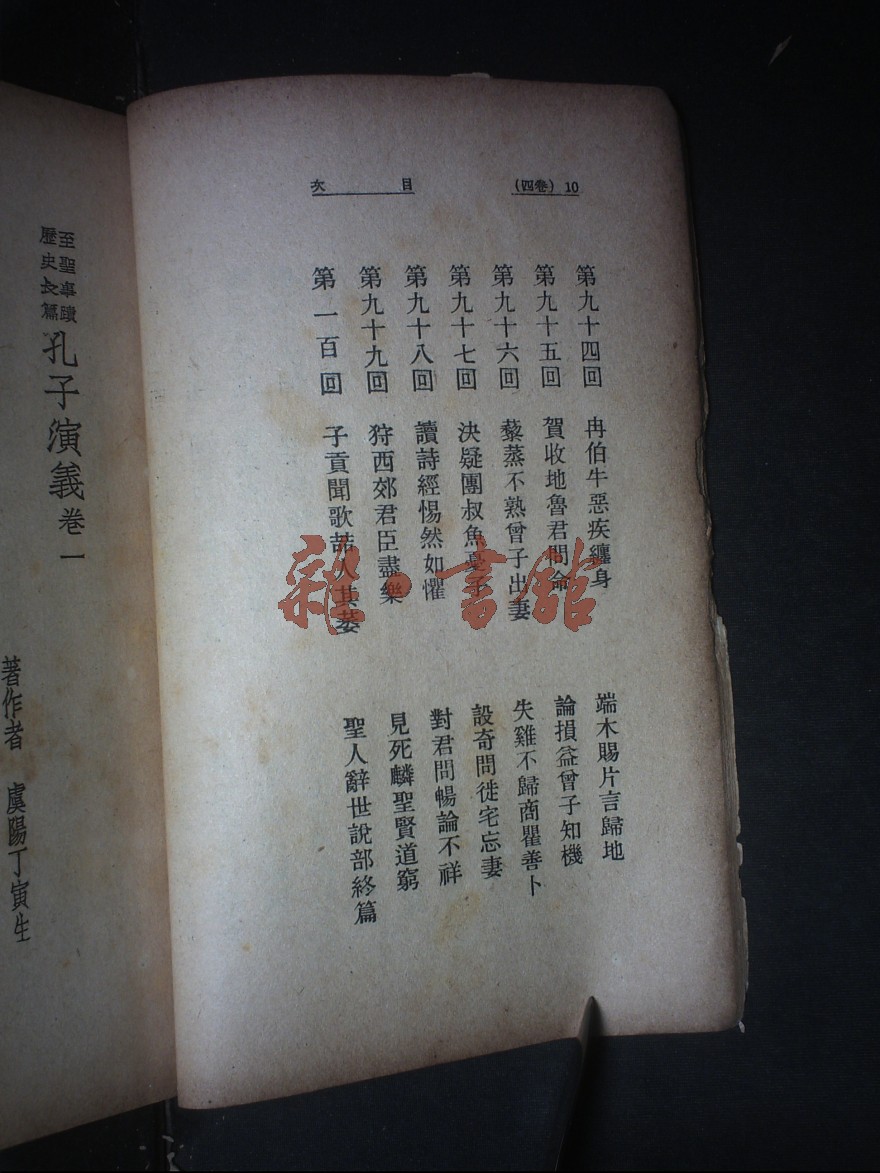 10 (卷四)
目次
第九十四回 冉伯牛惡疾纏身 端木賜片言歸地
第九十五回 賀收地魯君問論 論損益曾子知機
第九十六回 藜蒸不熟曾子出妻 失雞不歸商瞿善卜
第九十七回 決疑團叔魚憂子 設奇問徙宅忘妻
第九十八回 讀詩經惕然如懼 對君問暢論不祥
第九十九回 狩西郊君臣盡樂 見死麟聖賢道窮
第一百回 子貢聞歌喆人其萎 聖人辭世說部終篇
至聖事蹟
歷史長篇
孔子演義卷一
著作者 虞陽丁寅生
雜·書館